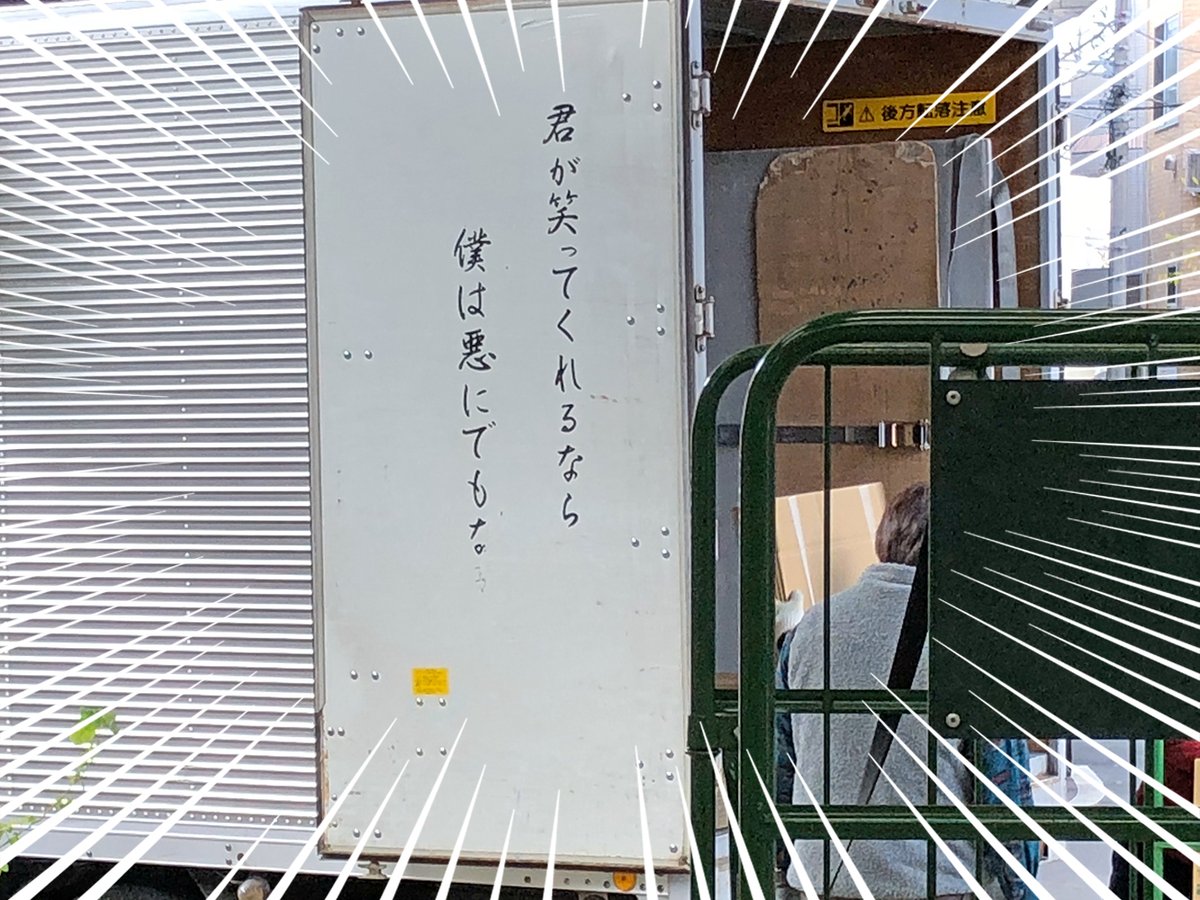 君が笑ってくれるなら
僕は悪にでもな。
後方転落注意